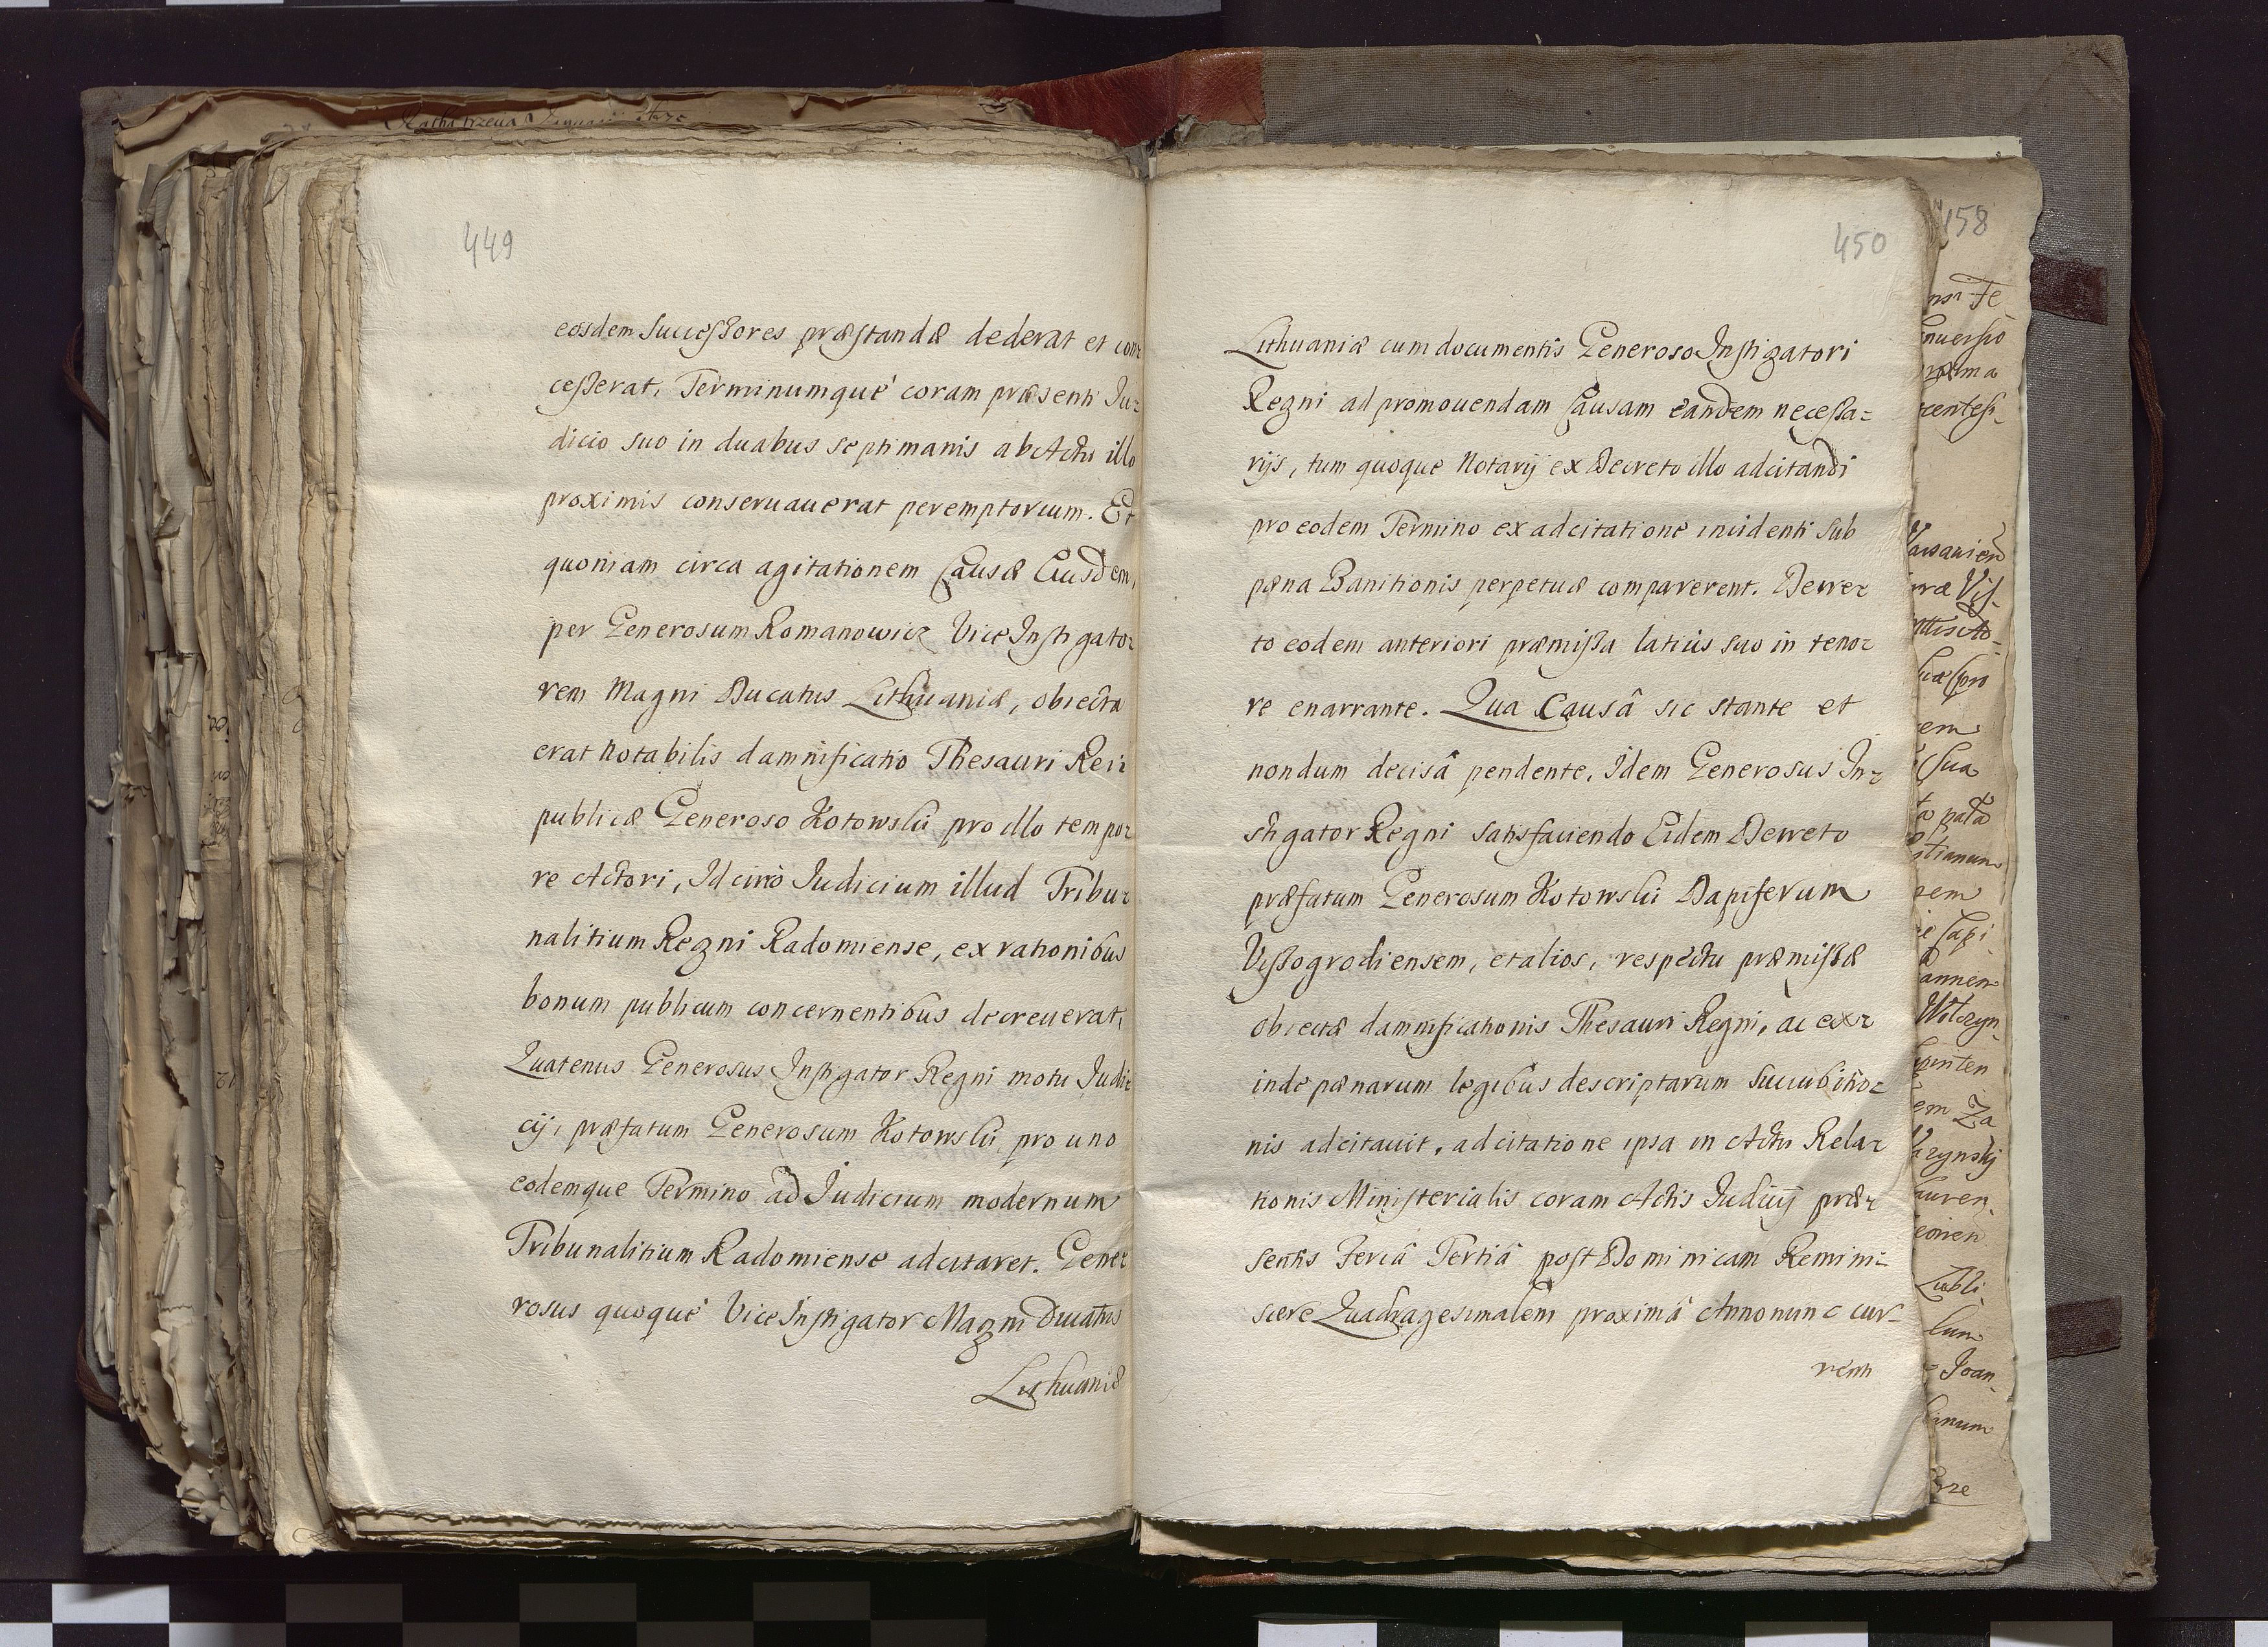 449
eosdem Successores præstandæ dederat et con=
cesserat, Terminumque coram præsenti Ju=
dicio suo in duabus septimanis ab Actu illo
proximis conseruauerat peremptorium. Et
quoniam circa agitationem Causæ Eiusdem,
per Generosum Romanowicz Vice Instigato=
rem Magni Ducatus Lithuaniæ, obiecta
erat notabilis damnificatio Thesauri Rei=
publicæ Generoso Kotowski pro illo tempo=
re Actori, Idcirco Iudicium illud Tribu=
nalitium Regni Radomiense, ex rationibus
bonum publicum concernentibus decreuerat,
Quatenus Generosus Instigator Regni motu Judi=
cij, præfatum Generosum Kotowski, pro uno
eodemque Termino ad Judicium modernum
Tribunalitium Radomiense adcitaret. Gene=
rosus quoque Vice Instigator Magni Ducatus
Lithuaniæ
450
Lithuaniæ cum documentis Generoso Instigatori
Regni ad promouendam Causam eandem necessa=
rijs, tum quoque Notarij ex Decreto illo adcitandi
pro eodem Termino ex adcitatione incidenti sub
pæna Banitionis perpetuæ comparerent. Decre=
to eodem anteriori præmissa latius suo in teno=
re enarrante. Qua Causâ sic stante et
nondum decisâ pendente, Idem Generosus In=
stigator Regni satisfaciendo Eidem Decreto
præfatum Generosum Kotowski Dapiferum
Vissogrodiensem, et alios, respectu præmissæ
obiectæ damnificationis Thesauri Regni, ac ex=
inde pænarum legibus descriptarum succubitio=
nis adcitauit, adcitatione ipsa in Actu Rela=
tionis Ministerialis coram Actis Judicij præ=
sentis Feriâ Tertiâ post Dominicam Remini=
scere Quadragesimalem proximâ Anno nunc cur=
renti
158